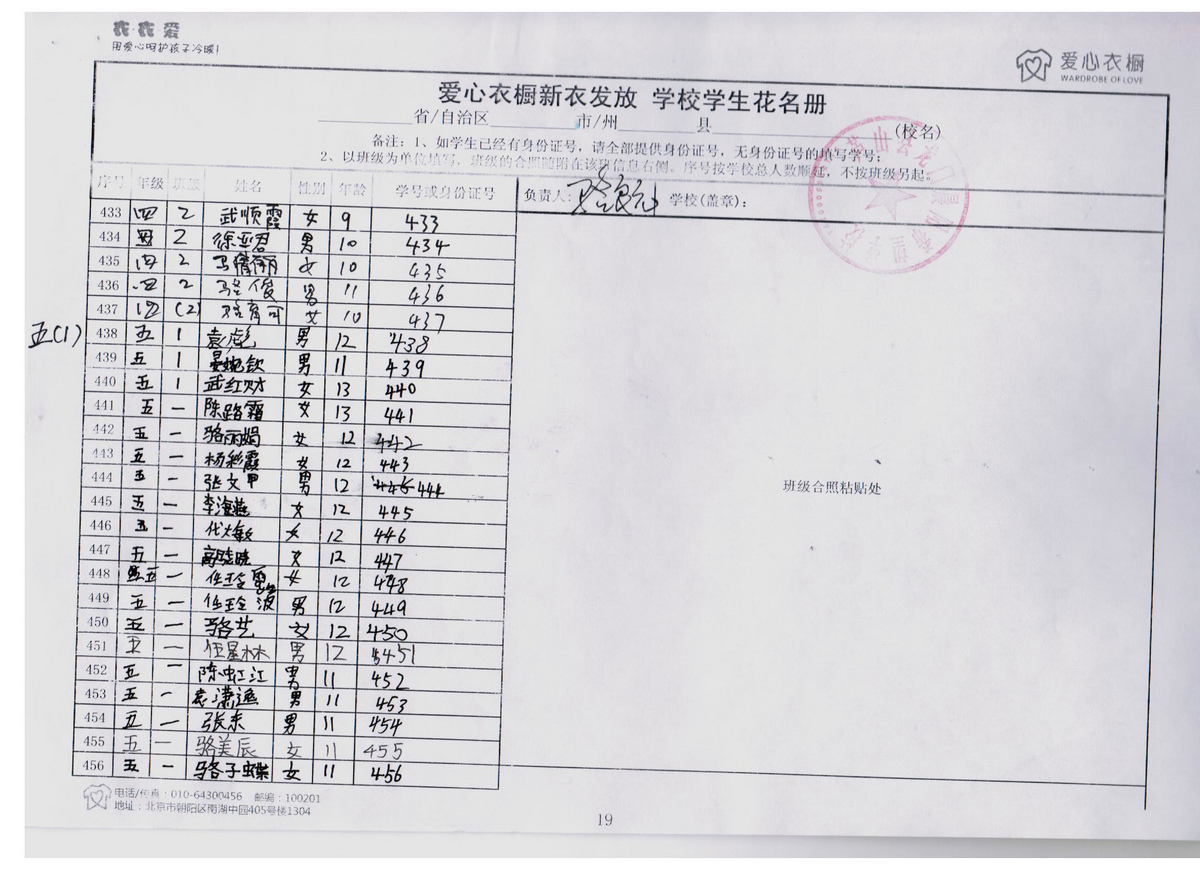 衣衣爱
用爱心呵护孩子冷暖!
爱心衣橱
WARDROBE OF LOVE
爱心衣橱新衣发放 学校学生花名册
省/自治区 市/州 县 (校名)
备注:1、如学生已经有身份证号,请全部提供身份证号,无身份证号的填写学号;
2、以班级为单位填写,班级的合照随附在该班信息右侧。序号按学校总人数顺延,不按班级另起。
序号 年级 班级 姓名 性别 年龄 学号或身份证号
负责人: 学校(盖章):
433 四 2 武顺霞 女 9 433
434 四 2 徐亚君 男 10 434
435 四 2 马倩丽 女 10 435
436 四 2 骆俊 男 11 436
437 四 (2) 女 10 437
五(1)
438 五 1 袁彪 男 12 438
439 五 1 男 11 439
440 五 1 武红财 女 13 440
441 五 一 陈路霜 女 13 441
442 五 一 骆丽娟 女 12 442
443 五 一 杨彩霞 女 12 443
444 五 一 张文甲 男 12 444
445 五 一 李海燕 女 12 445
446 五 一 代大敏 女 12 446
447 五 一 高晓晓 女 12 447
448 五 一 任玲 女 12 448
449 五 一 任玲波 男 12 449
450 五 一 骆艺 女 12 450
451 五 一 任星林 男 12 451
452 五 一 陈虹江 男 11 452
453 五 一 袁潇逸 男 11 453
454 五 一 张东 男 11 454
455 五 一 骆美辰 女 11 455
456 五 一 骆子蝶 女 11 456
班级合照粘贴处
电话/传真:010-64300456 邮编:100201
地址:北京市朝阳区南湖中园405号楼1304
19